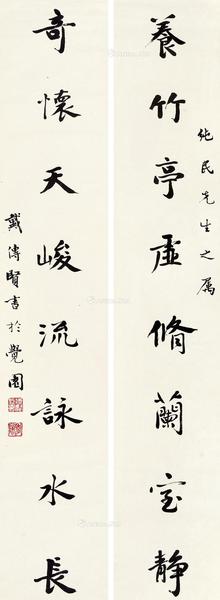 養竹亭虛脩蘭室静
純民先生之屬
奇懷天峻流詠水長
戴傳賢書於覺園